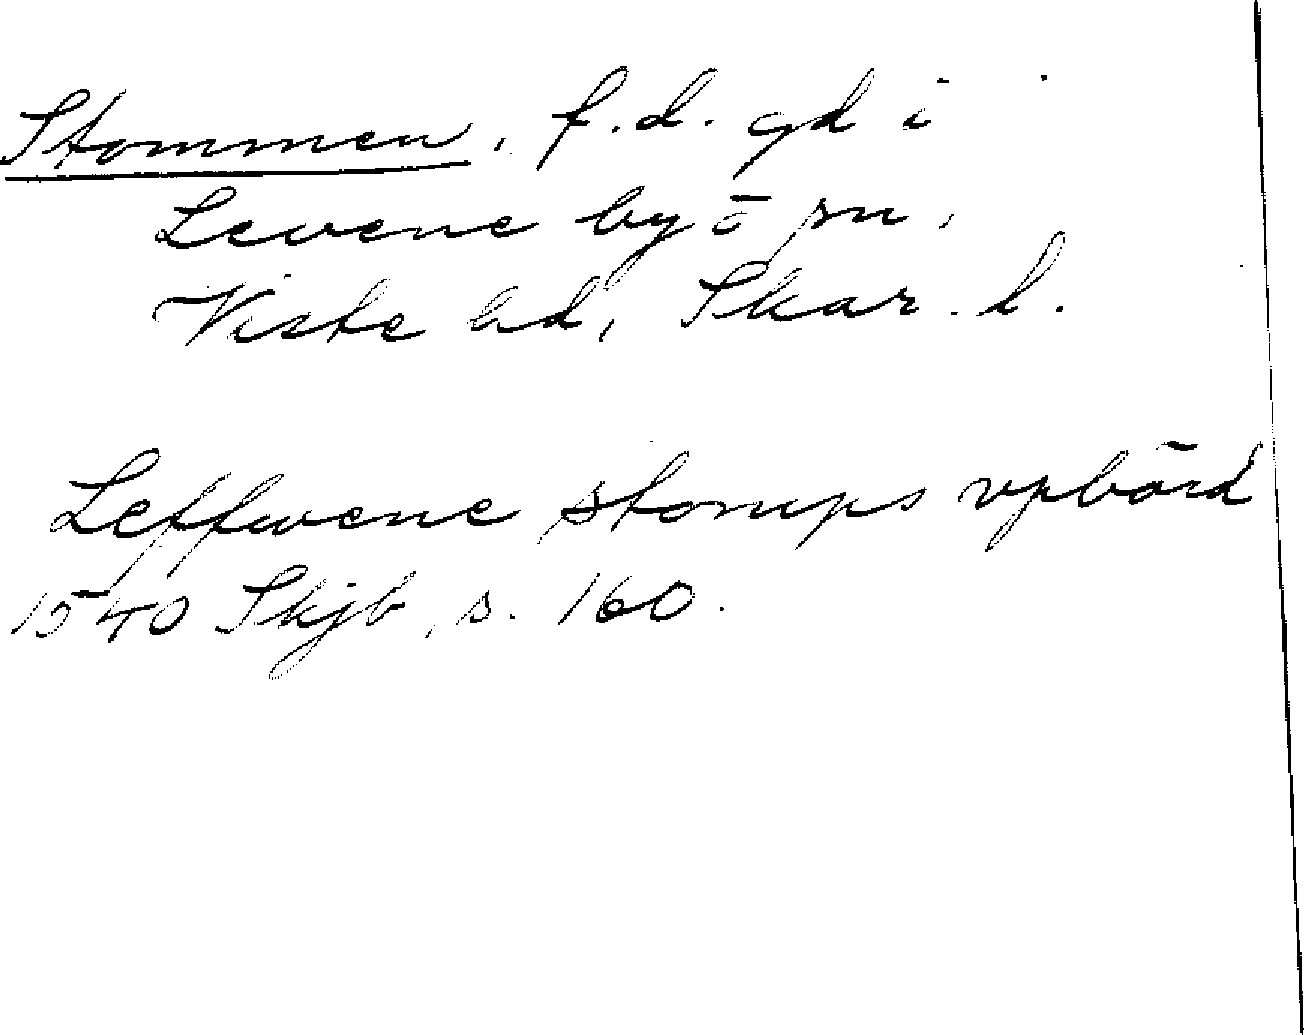 Stommen, f.d. gd i
Levene by o sn,
Viste hd, Skar. l.
Leffwene stomps vpbörd
1540 Skjb, s. 160.